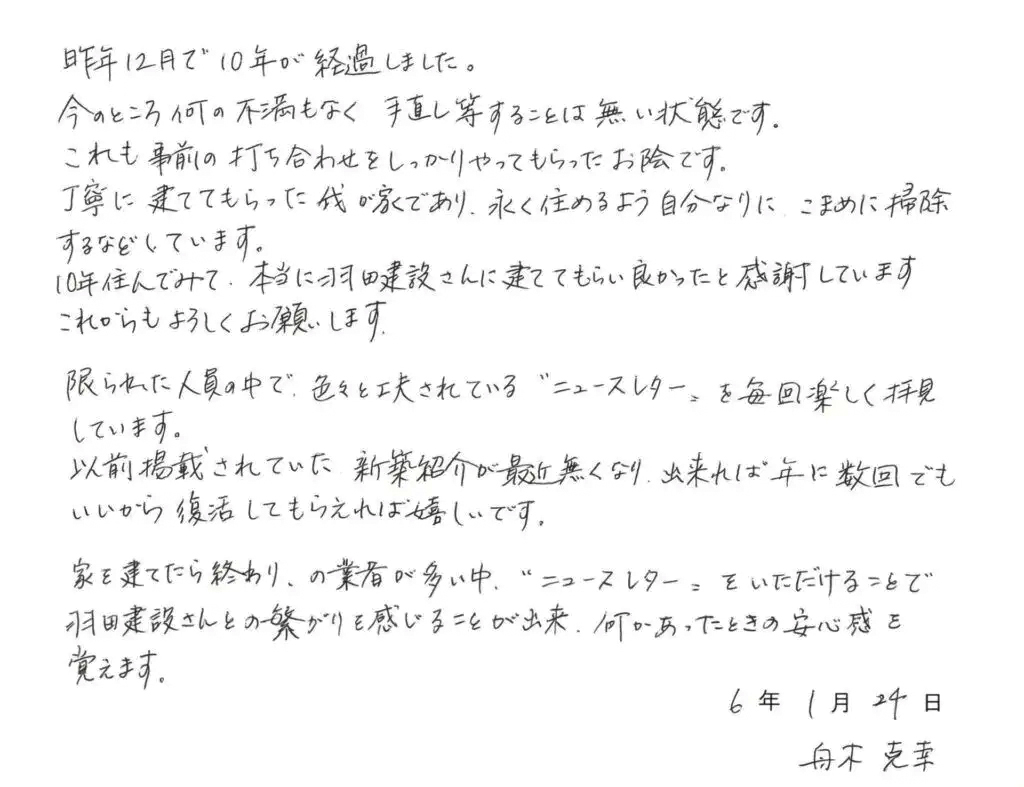 昨年12月で10年が経過しました。
今のところ何の不満もなく 手直し等することは無い状態です。
これも事前の打ち合わせをしっかりやってもらったお陰です。
丁寧に建ててもらった我が家であり、永く住めるよう自分なりに、こまめに掃除
するなどしています。
10年住んでみて、本当に羽田建設さんに建ててもらい良かったと感謝しています
これからもよろしくお願いします。
限られた人員の中で、色々と工夫されている〝ニュースレター〟を毎回楽しく拝見
しています。
以前掲載されていた新築紹介が最近無くなり、出来れば年に数回でも
いいから復活してもらえれば嬉しいです。
家を建てたら終わり、の業者が多い中、〝ニュースレター〟をいただけることで
羽田建設さんとの繋がりを感じることが出来、何かあったときの安心感を
覚えます。
6年 1月 24日
舟木 克幸